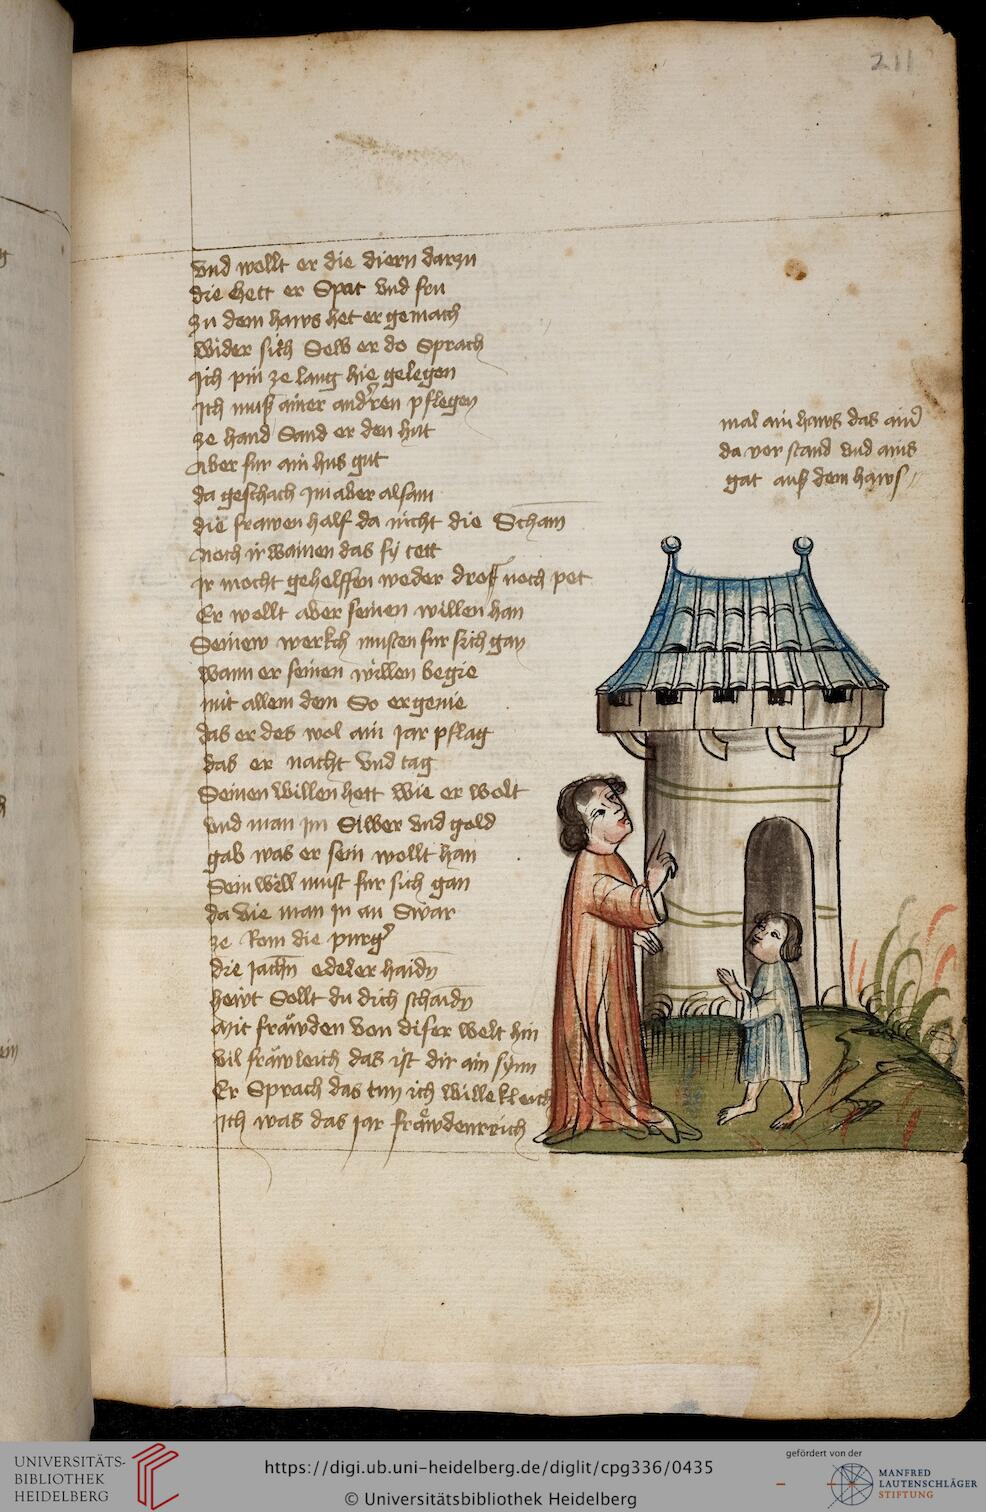 211
vnd wollt er die diern darzu
die hett er Spat vnd fru
zu dem haws het er gemach
wider sich Selb er do Sprach
Ich pin ze lang hie gelegen
Ich muß ainer andren pflegen
ze hand Sand er den hut
Aber fur ain hus gut
da geschach Im aber alsam
die frawen half da nicht die Scham
Noch ir wainen das sy tett
Ir mocht gehelffen weder dro noch pet
Er wollt aber seinen willen han
Seinew werkch musten fur sich gan
wann er seinen willen begie
mit allem dem So ergenie
das er des wol ain Jar pflag
das er nacht vnd tag
Seinen willen hett wie er wolt
vnd man Im Silber vnd gold
gab was er sein wollt han
Sein will must fur sich gan
da die man In an Swar
ze Rom die purger
die Jachn edeler haidn
hewt Sollt du dich schaidn
Mit fräwden von diser welt hin
vil fräwleich das ist dir ain synn
Er Sprach das tun ich willekleich
Ich was das Jar fräwdenreich
mal ain haws das ain
da vor stand vnd ains
gat auß dem haws
UNIVERSITÄTS-
BIBLIOTHEK
HEIDELBERG
https://digi.ub.uni-heidelberg.de/diglit/cpg336/0435
© Universitätsbibliothek Heidelberg
gefördert von der
MANFRED
LAUTENSCHLÄGER
STIFTUNG